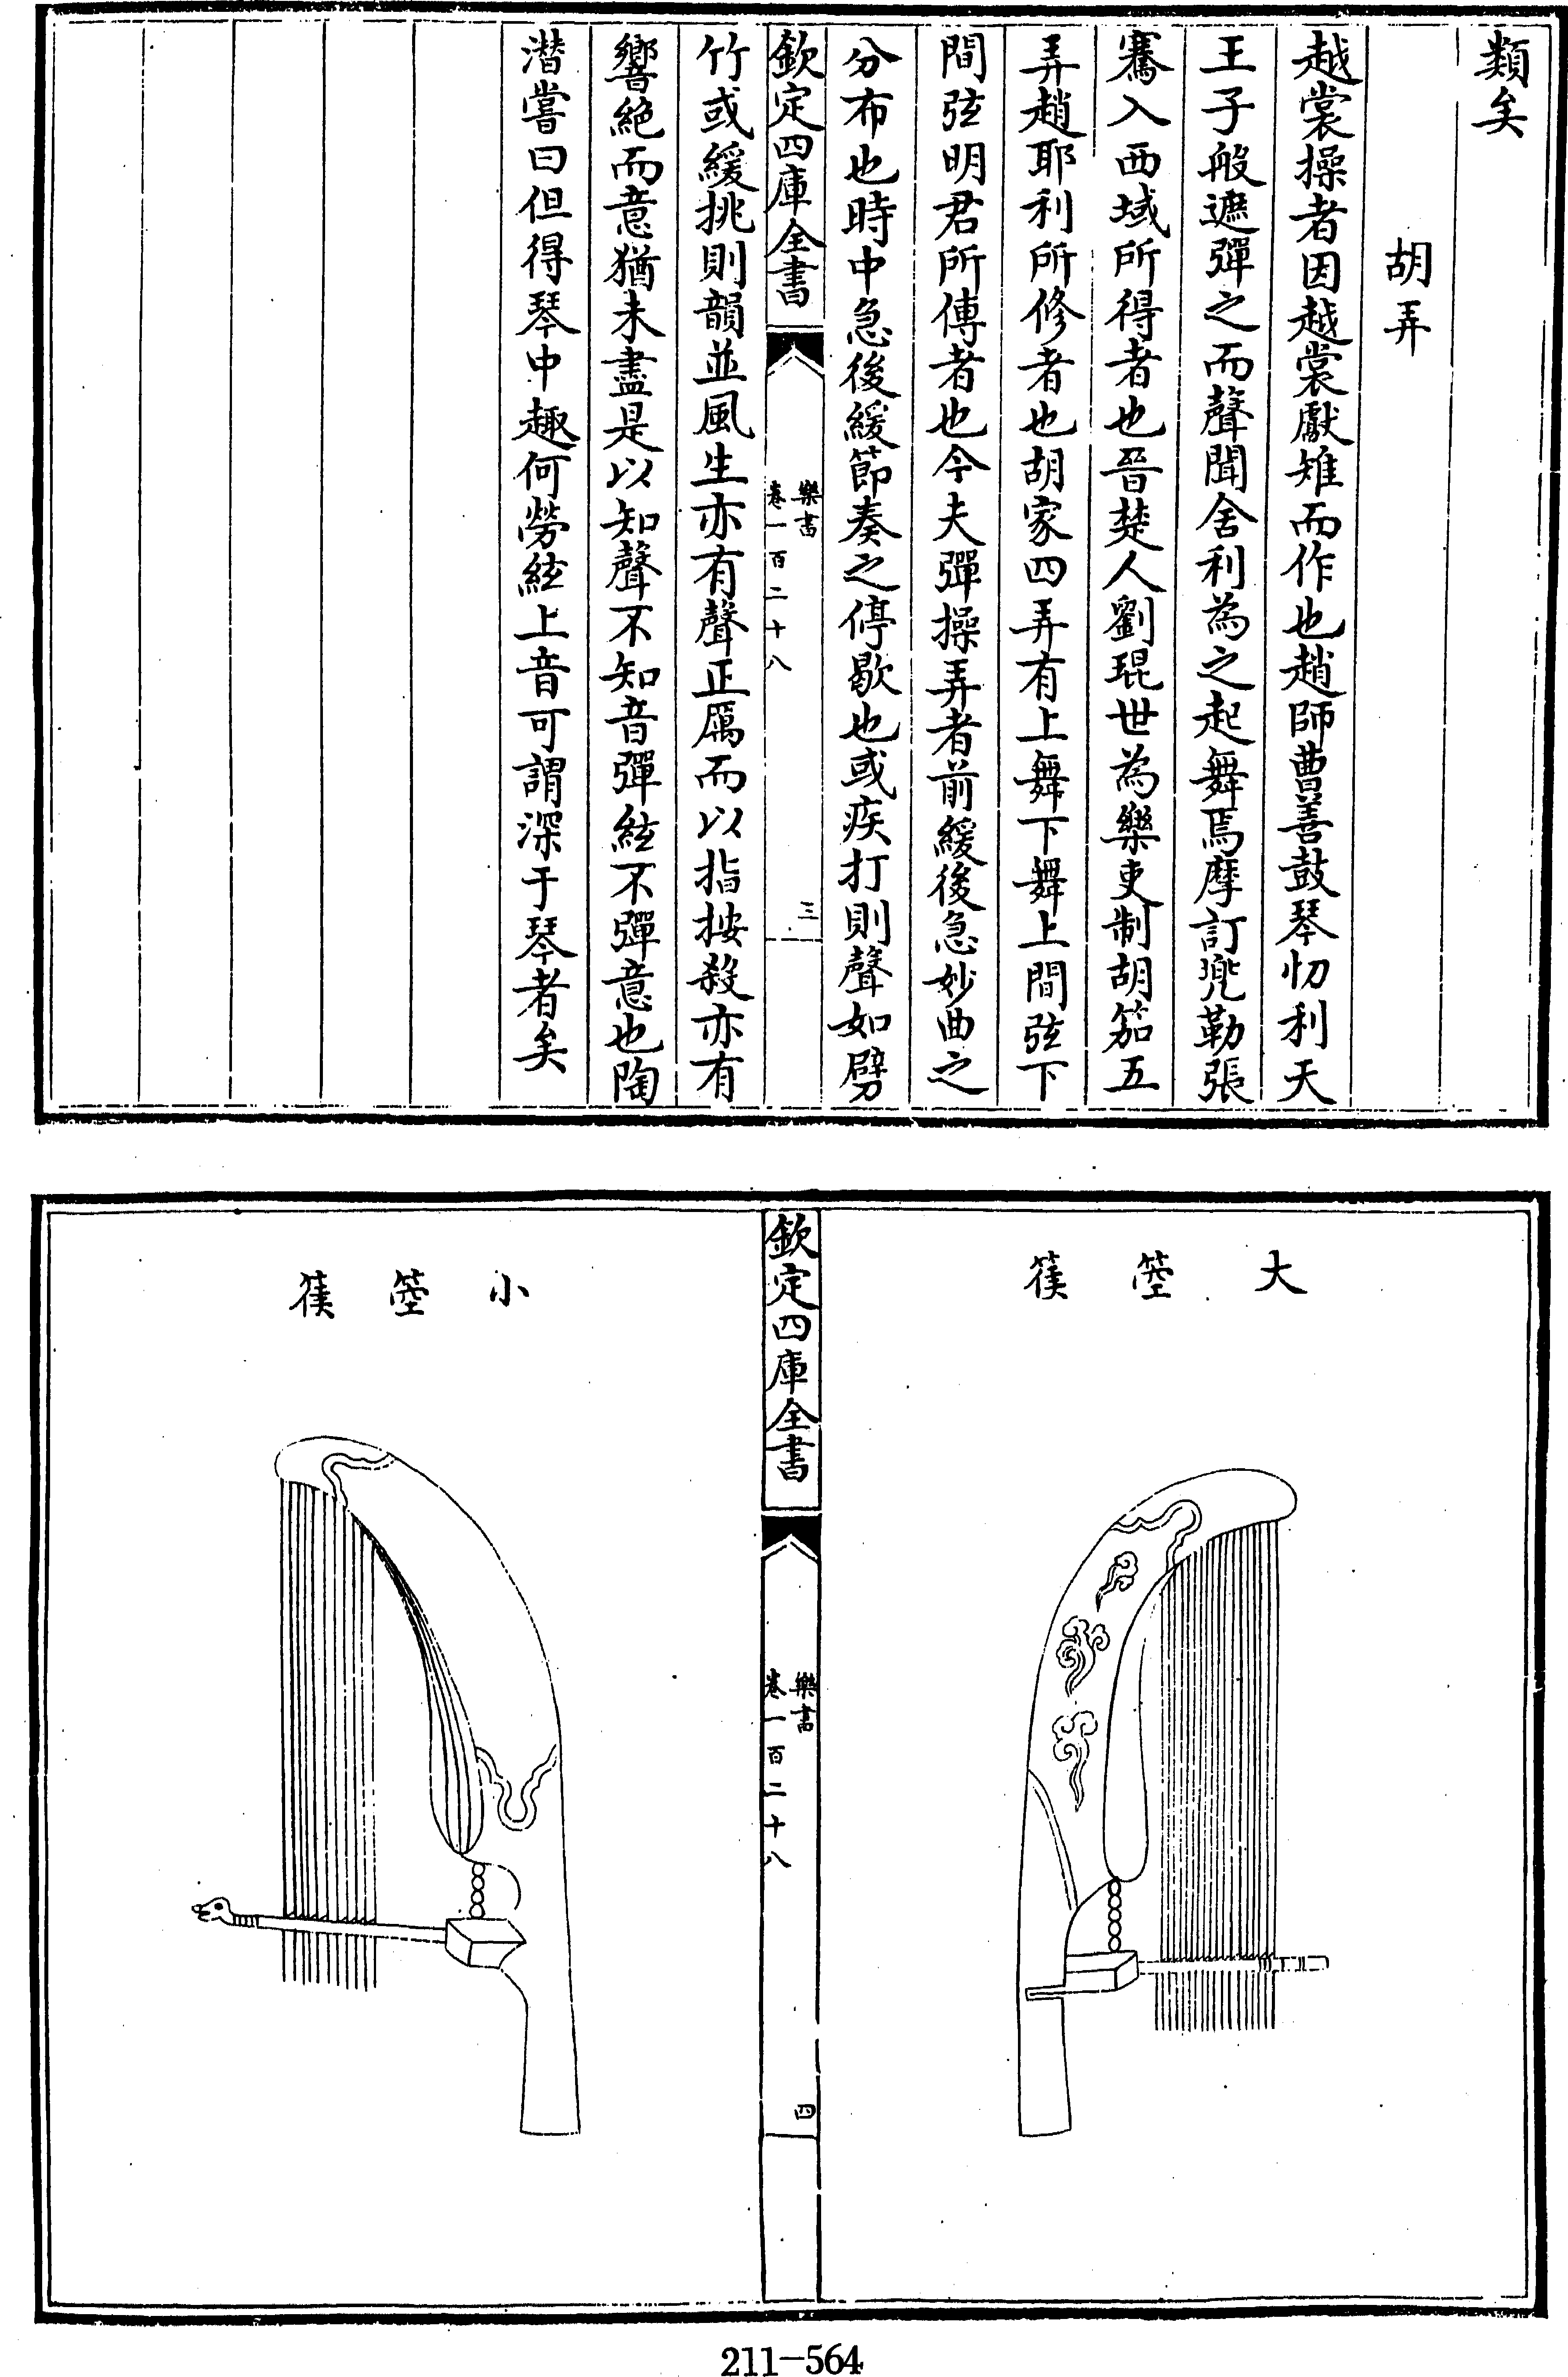 類矣
胡弄
越裳操者因越裳獻雉而作也趙師曹善鼓琴忉利天
王子般遮彈之而聲聞舍利為之起舞焉摩訂兜勒張
騫入西域所得者也晉楚人劉琨世為樂吏制胡笳五
弄趙耶利所修者也胡家四弄有上舞下舞上間弦下
間弦明君所傳者也今夫彈操弄者前緩後急妙曲之
分布也時中急後緩節奏之停歇也或疾打則聲如劈
欽定四庫全書
樂書
卷一百二十八
三
竹或緩挑則韻並風生亦有聲正厲而以指按殺亦有
響絶而意猶未盡是以知聲不知音彈絃不彈意也陶
潛嘗曰但得琴中趣何勞絃上音可謂深于琴者矣
大箜篌
欽定四庫全書
樂書
卷一百二十八
四
小箜篌
211-564